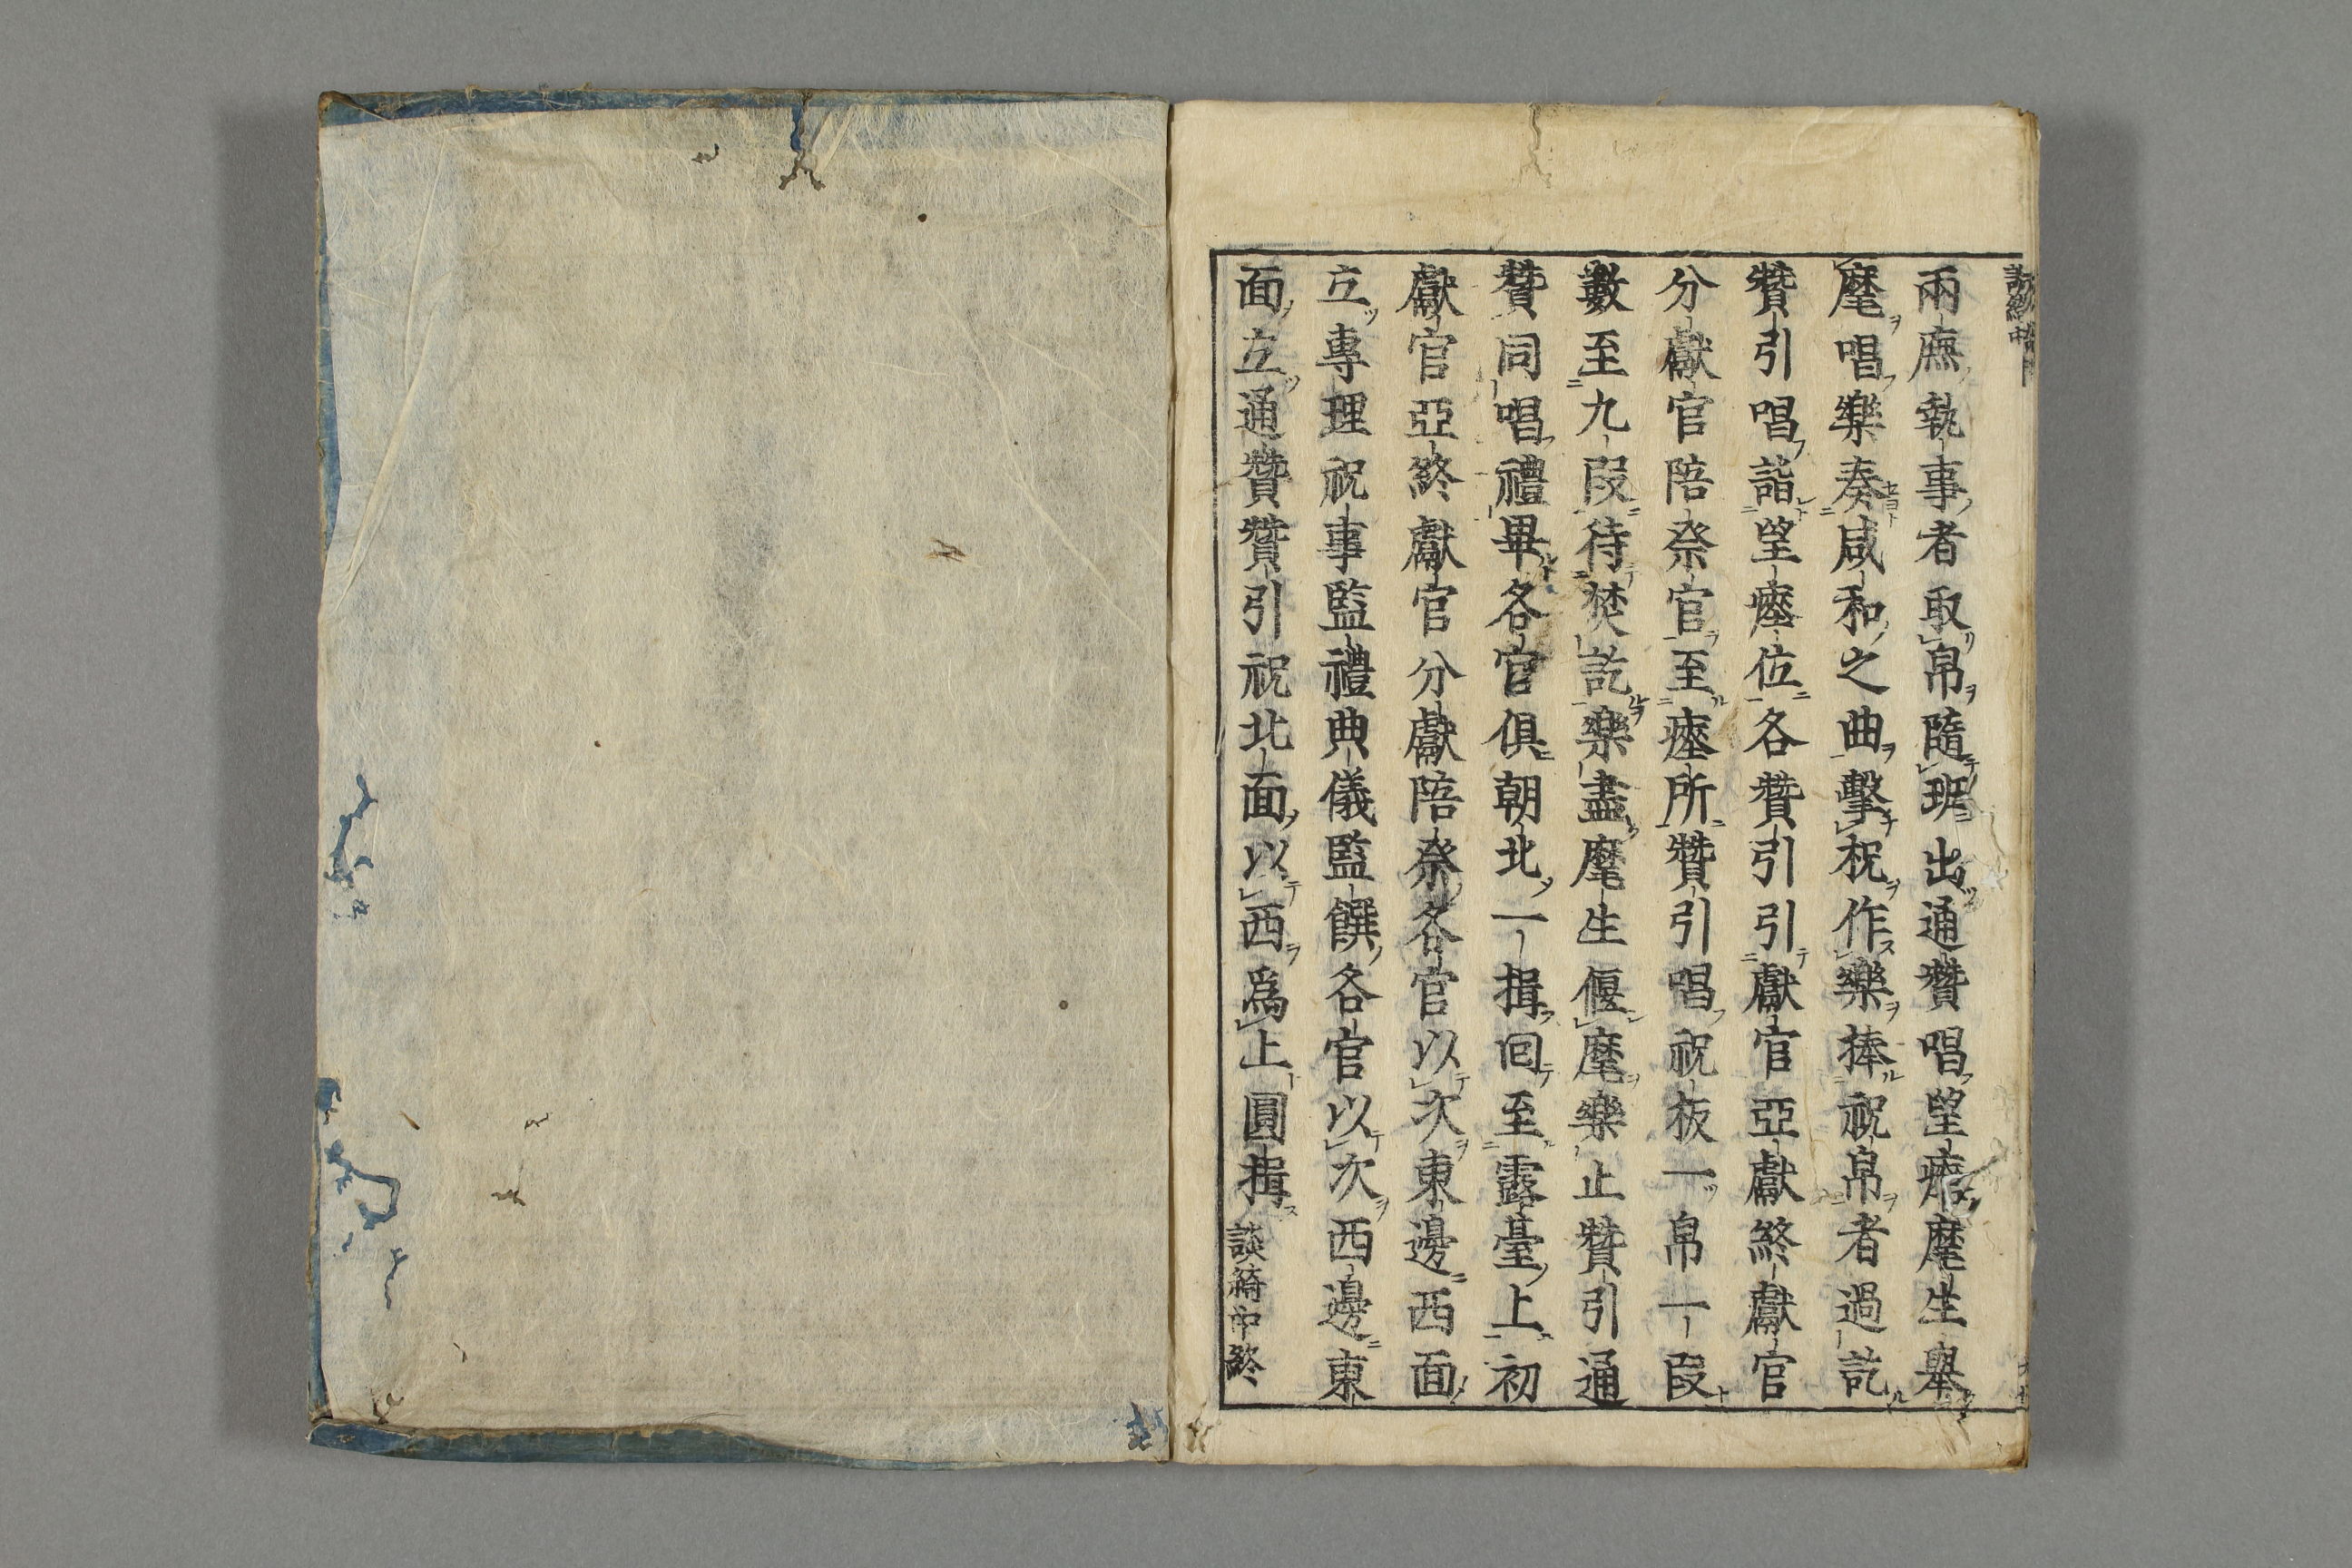 兩廡執事者取帛隨班出通贊唱望瘞麾生舉
麾唱樂奏咸和之曲擊柷作樂捧祝帛者過訖
贊引唱詣望瘞位各贊引引獻官亞獻終獻官
分獻官陪祭官至瘞所贊引唱祝板一帛一段
數至九段待焚訖樂盡麾生偃麾樂止贊引通
贊同唱禮畢各官俱朝北一揖回至露臺上初
獻官亞終獻官分獻陪祭各官以次東邊西面
立專理祝事監禮典儀監饌各官以次西邊東
面立通贊贊引祝北面以西爲上圓揖
談綺中終